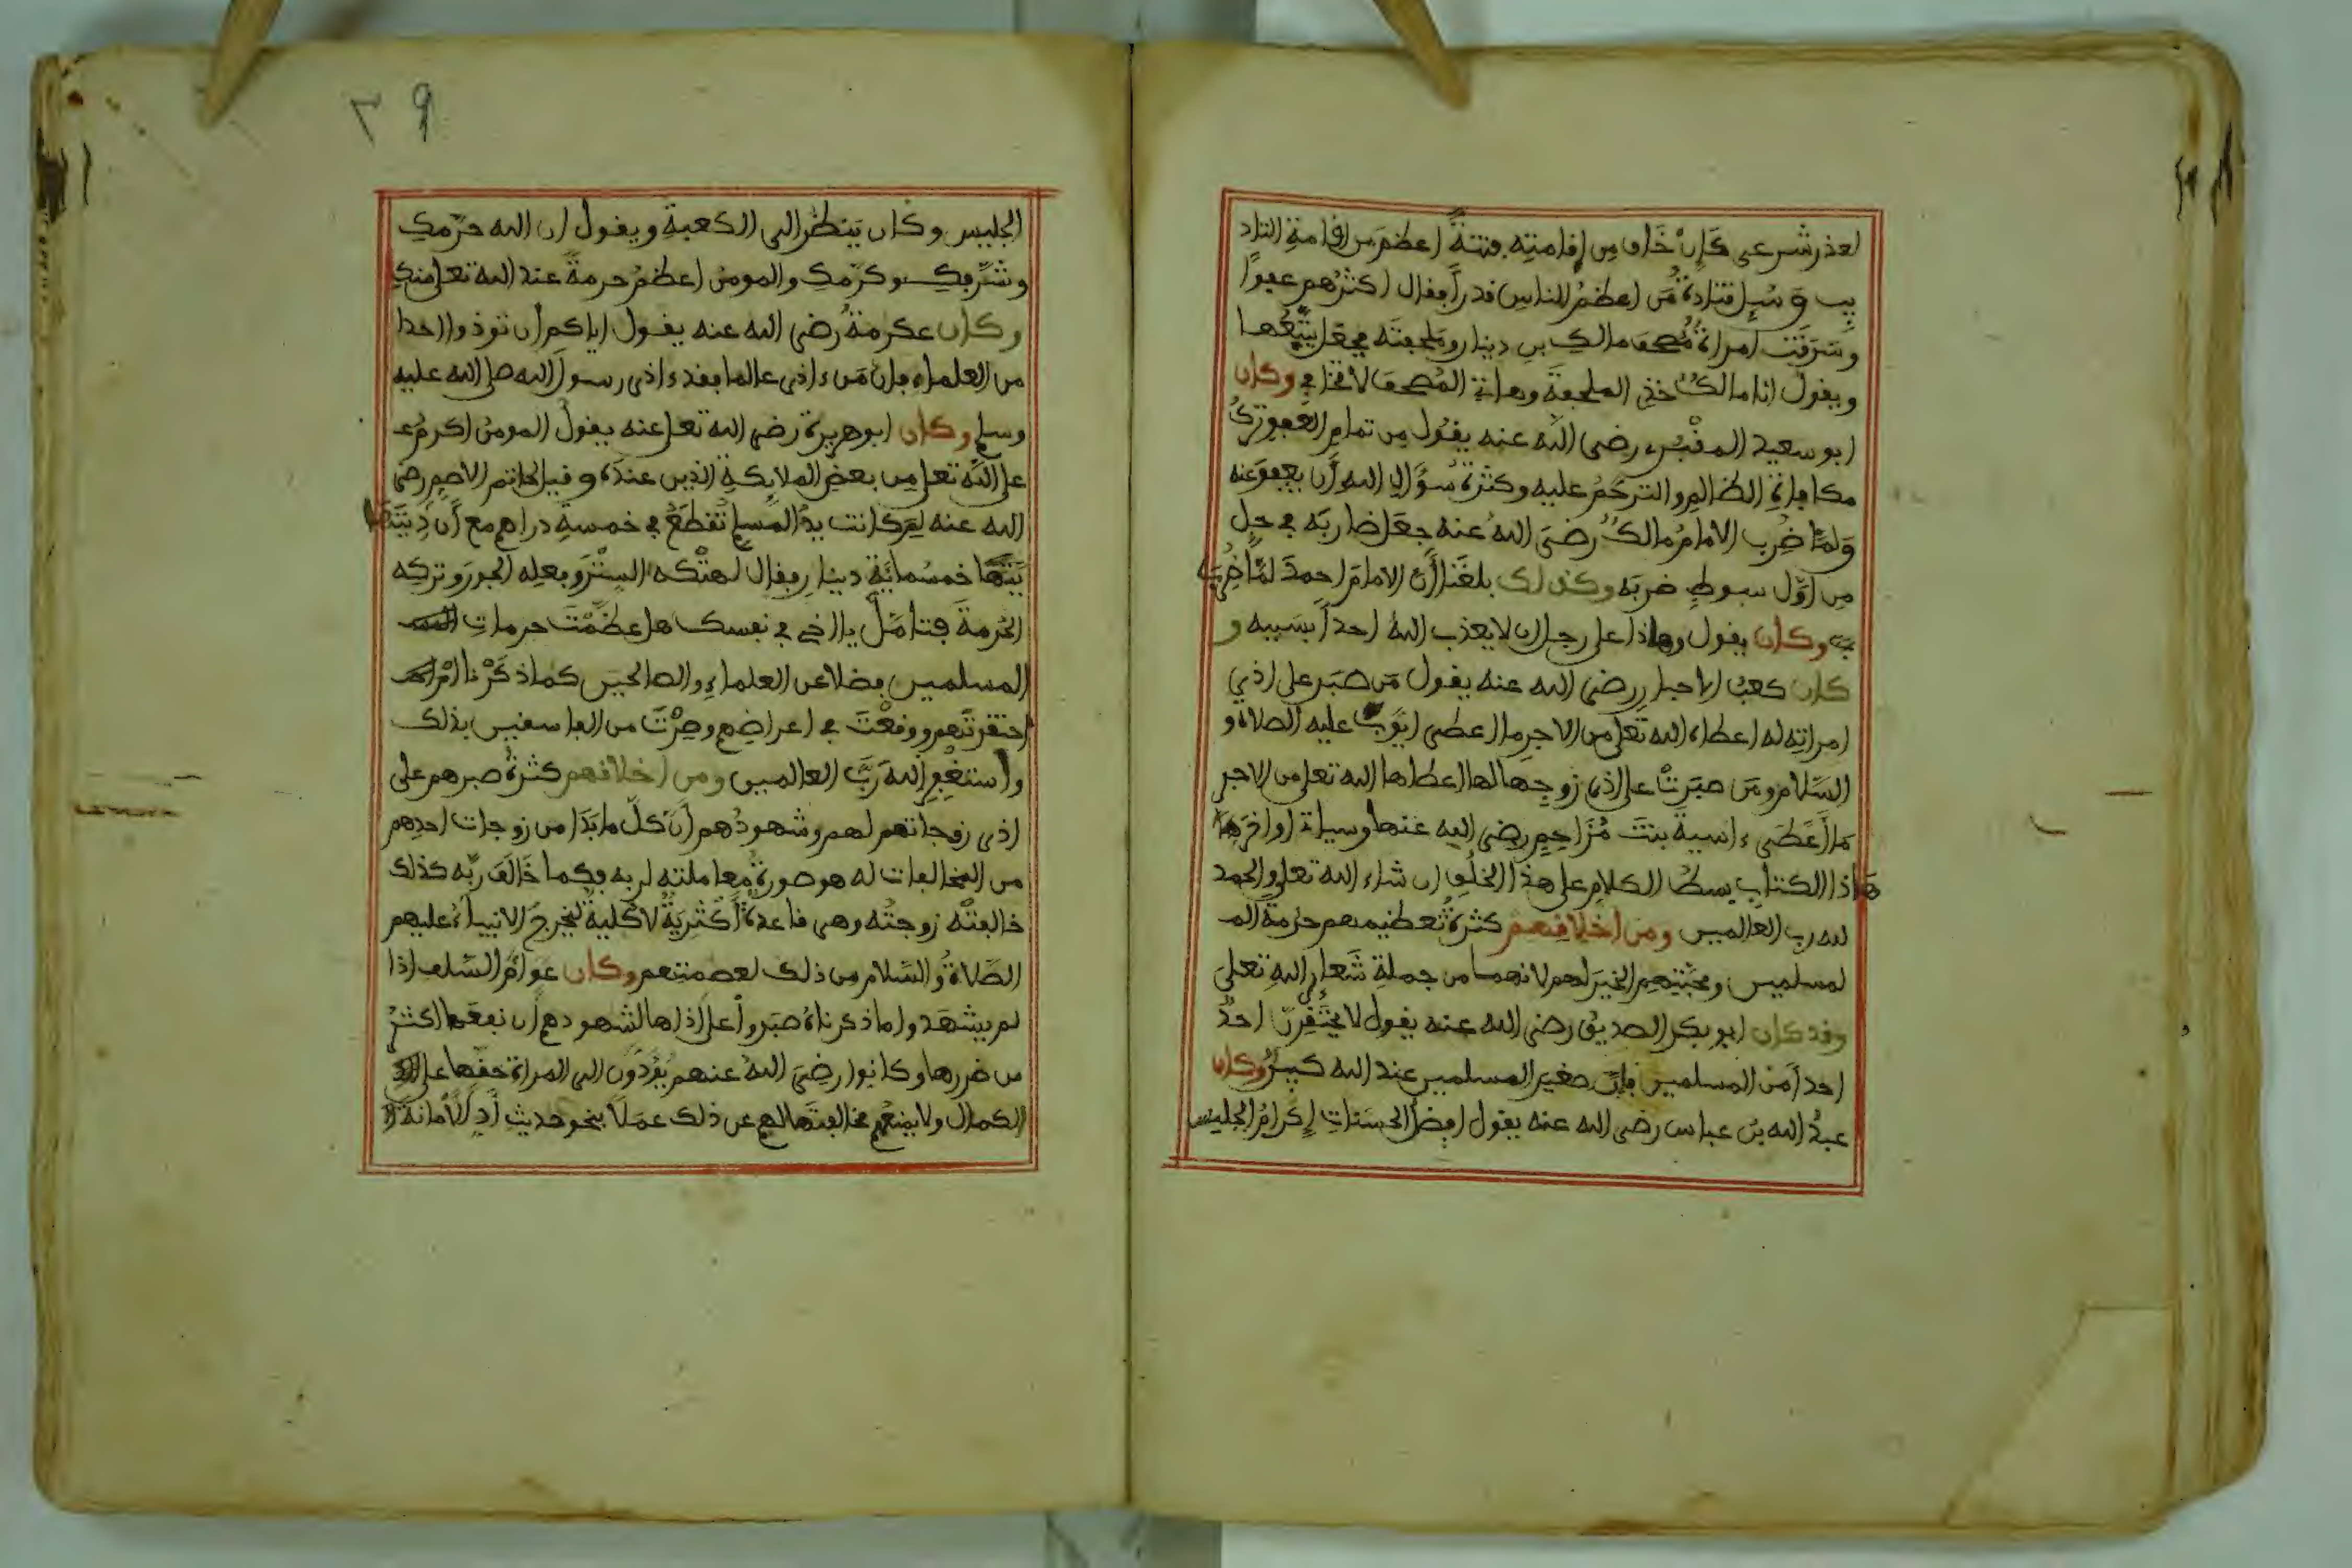 لعذر شرعى كان خاف من إقامته فتنة أعظم من إقامة التاد
يب و سئل قتادة من أعظم الناس قدرا فقال أكثرهم عفوا
وسرقت امراة مصحف مالك بن دينار وملحفته فجعل يتبعها
ويقول انا مالك خذى الملحفة وهاتِ المصحف لا تخافي وكان
ابو سعيد المقبرى رضى الله عنه يقول من تمام العفو ترك
مكافاة الظالم والترحم عليه وكثرة سؤال الله أن يعفو عنه
ولما ضرب الامام مالك رضى الله عنه جعل ضاربه في حل
من اول سوط ضربه وكذلك بلغنا أن الامام احمد لما ضرب
وكان يقول وماذا على رجل ان لا يعذب الله احدا بسببه و
كان كعب الاحبار رضى الله عنه يقول من صبر على اذي
امراته له اعطاه الله تعلى من الاجر ما اعطى ايوب عليه الصلاة و
السلام ومن صبرت على اذى زوجها لها اعطاها الله تعلى من الاجر
ما أعطى ءاسية بنت مزاحم رضى الله عنها وسياتى اواخر
هاذا الكتاب بسط الكلام على هذا الخلق ان شاء الله تعلى والحمد
لله رب العالمين ومن اخلاقهم كثرة تعظيمهم حرمة الم
لمسلمين ومحبتهم الخير لهم لانهما من جملة شعائر الله تعلى
وقد كان ابو بكر الصديق رضى الله عنه يقول لا يحتقرن احد
احدا من المسلمين فإن صغير المسلمين عند الله كبير وكان
عبد الله بن عباس رضى الله عنه يقول افضل الحسنات إكرام الجليس
٣٩
الجليس وكان ينظر الى الكعبة ويقول ان الله حرمك
وشرفك وكرمك والمومن اعظم حرمة عند الله تعلى منك
وكان عكرمة رضى الله عنه يقول اياكم أن توذوا احدا
من العلماء فإن من ءاذى عالما فقد ءاذى رسول الله صلى الله عليه
وسلم وكان ابو هريرة رضى الله تعلى عنه يقول المومن اكرم
على الله تعلى من بعض الملائكة الذين عنده وقيل لحاتم الاصم رضى
الله عنه لم كانت يد المسلم تقطع في خمسة دراهم مع أن ديتها
خمسمائة دينار فقال لهتكه الستر وفعله الجور وتركه
الحرمة فتامل يا اخى في نفسك هل عظمت حرمات
المسلمين فضلا عن العلماء والصالحين كما ذكرنا ام
احتقرتهم ووقعت في اعراضهم وصرت من الفاسقين بذلك
واستغفر الله رب العالمين ومن اخلاقهم كثرة صبرهم على
اذى زوجاتهم لهم وشهودهم أن كل ما بدا من زوجات احدهم
من المخالفات له هو صورة معاملته لربه فكما خالف ربه كذلك
خالفته زوجته وهى قاعدة أكثرية لا كلية ليخرج الانبياء عليهم
الصلاة والسلام من ذلك لعصمتهم وكان عوام السلف اذا
لم يشهدوا ما ذكرناه صبروا على اذاها لشهودهم أن نفعها اكثر
من ضررها وكانوا رضى الله عنهم يؤدون الى المراة حقها على
الكمال ولا يمنعهم مخالفتها لهم عن ذلك عملا بنحو حديث أد الأمانة